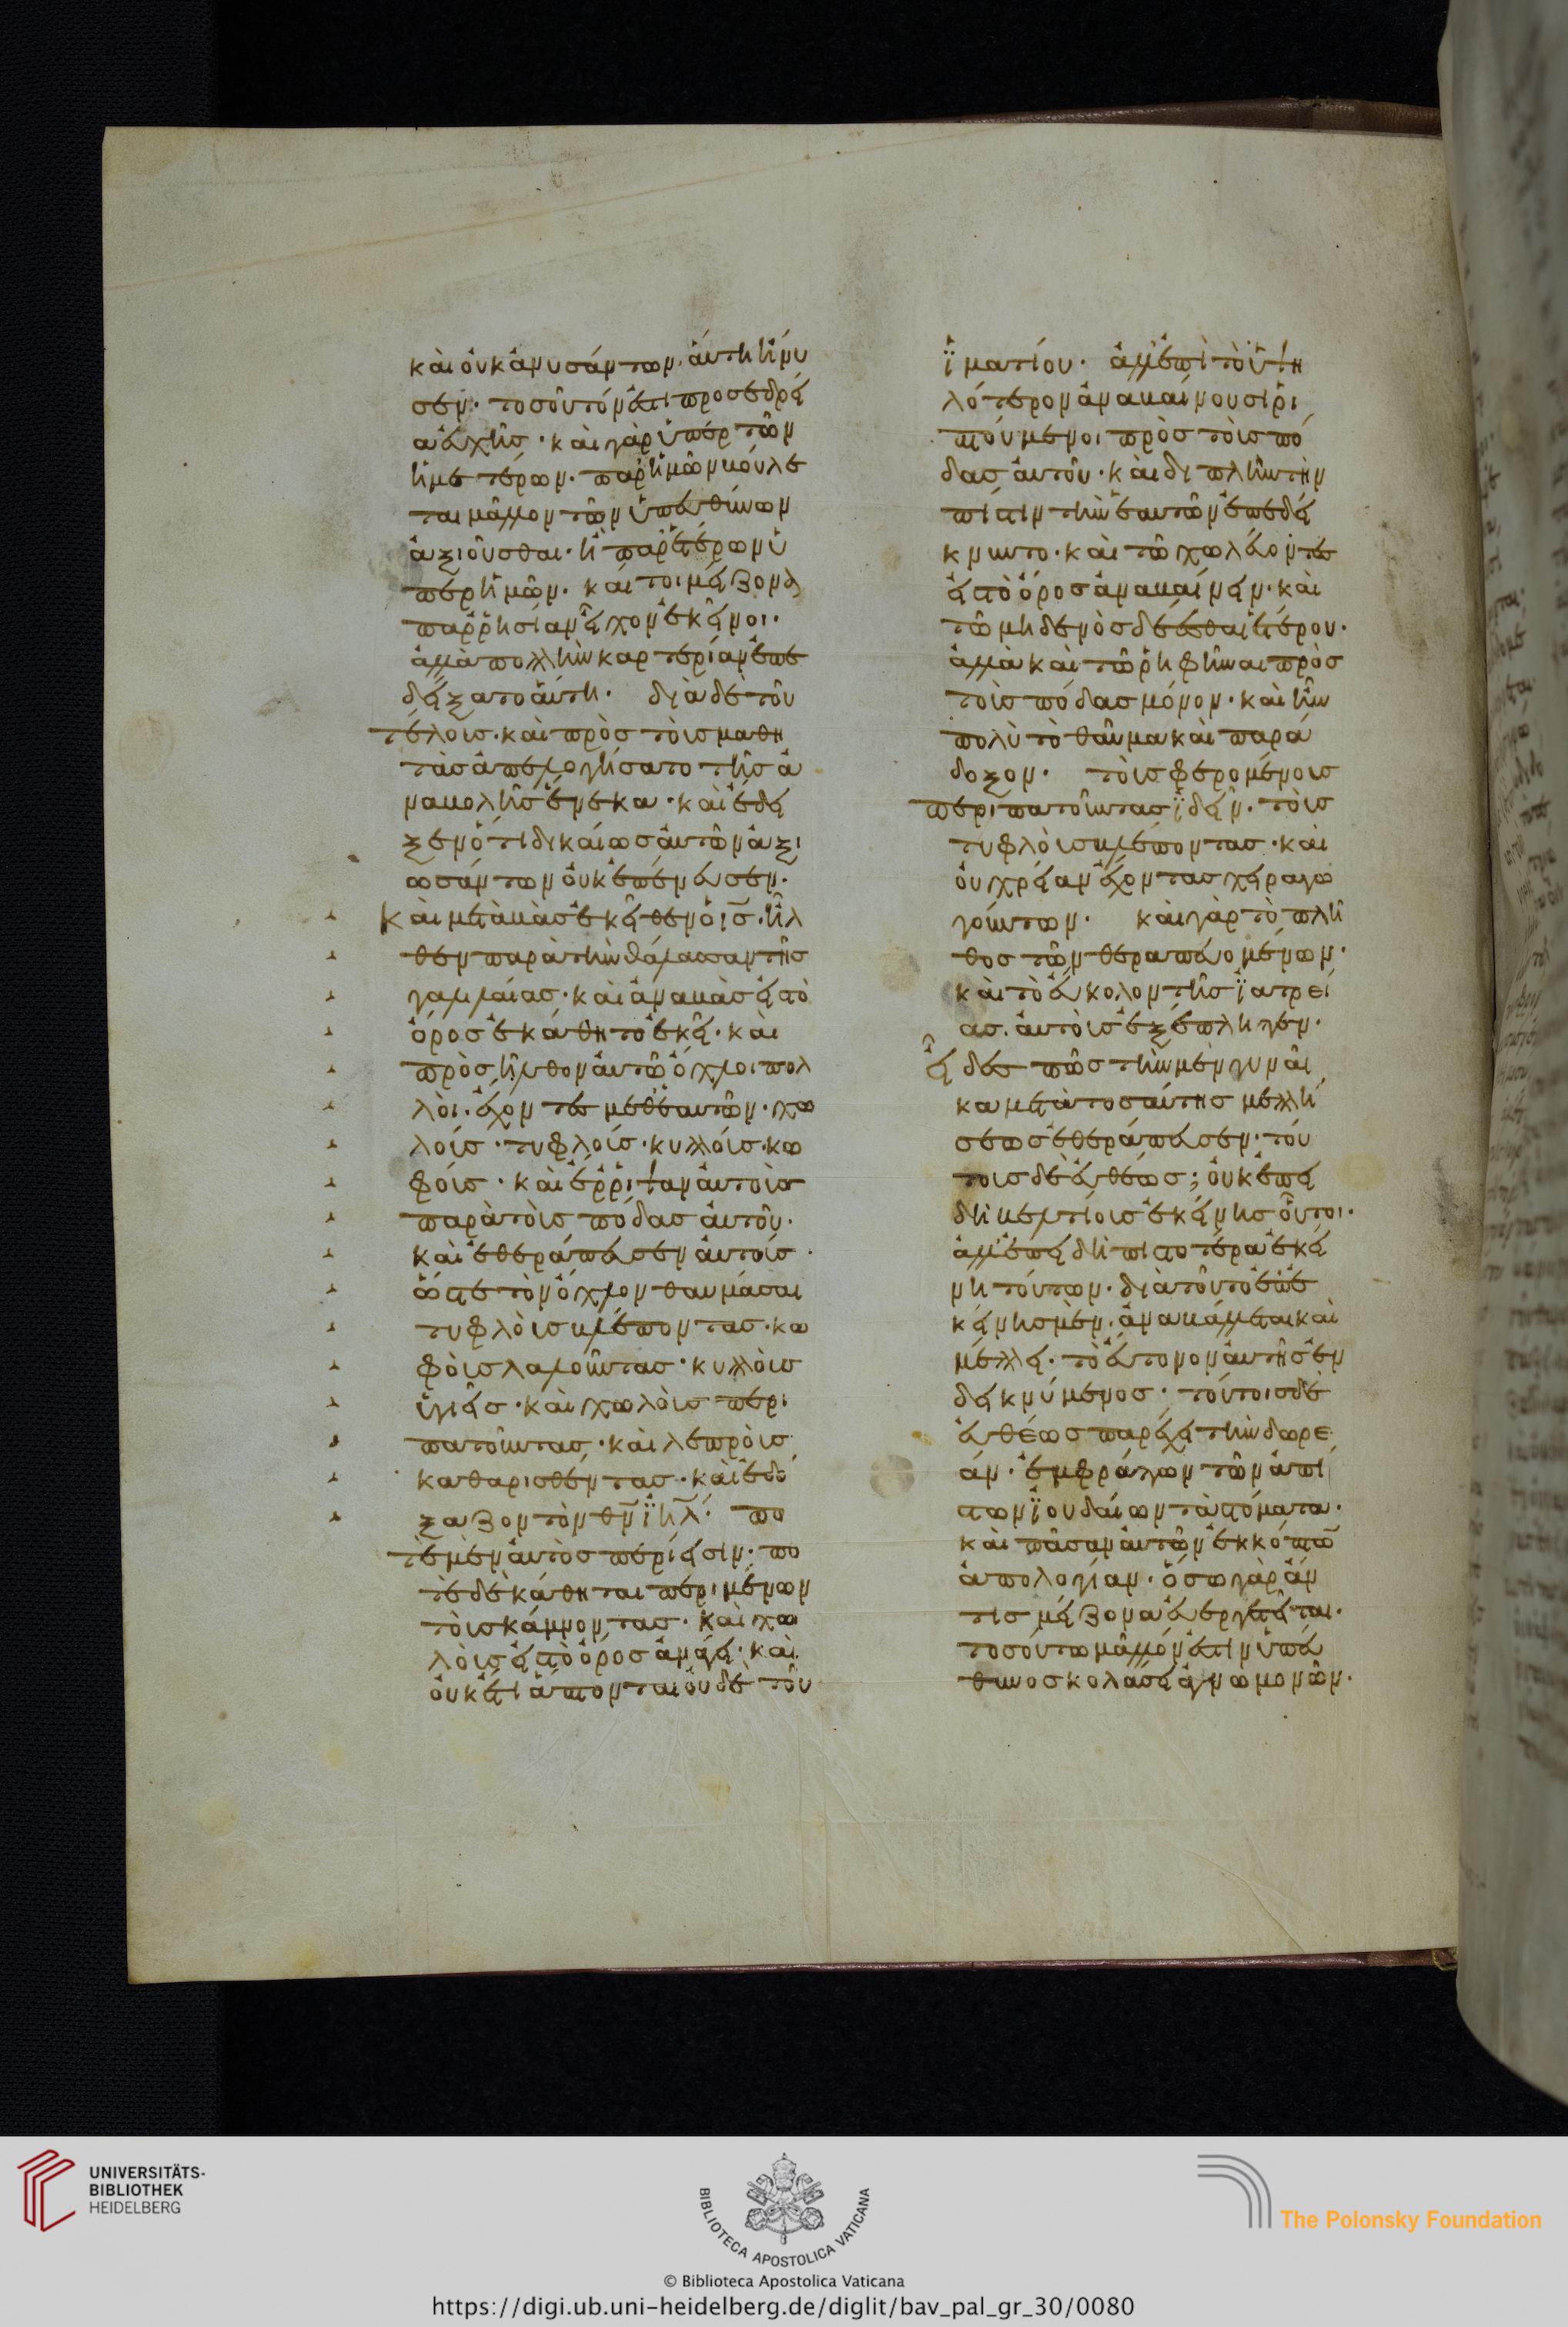 καὶ οὐκ ἀνυσάντων, αὐτὴ ἤνυ
σεν· τοσοῦτόν ἐστι προσεδρεί
α εὐχῆς· καὶ γὰρ ὑπὲρ τῶν
ἡμετέρων· παρ' ἡμῶν βούλε
ται μᾶλλον τῶν ὑπευθύνων
ἀξιοῦσθαι· ἢ παρ' ἑτέρων ὑ
πὲρ ἡμῶν· καί τοι μείζονα
παρρησίαν εἶχον ἐκεῖνοι·
ἀλλὰ πολλὴν καρτερίαν ἐπε
δείξατο αὕτη· διὰ δὲ τοῦ
τέλους· καὶ πρὸς τοὺς μαθη
τὰς ἀπελογήσατο τῆς ἀ
ναβολῆς ἕνεκα· καὶ ἔδει
ξεν ὅτι δικαίως αὐτῶν ἀξι
ωσάντων οὐκ ἐπένευσεν·
Καὶ μεταβὰς ἐκεῖθεν ὁ ις· ἦλ
θεν παρὰ τὴν θάλασσαν τῆς
γαλιλαίας· καὶ ἀναβὰς εἰς τὸ
ὄρος ἐκάθητο ἐκεῖ· καὶ
προσῆλθον αὐτῷ ὄχλοι πολ
λοὶ· ἔχοντες μεθ' ἑαυτῶν· χω
λούς· τυφλούς· κυλλούς· κω
φούς· καὶ ἔρριψαν αὐτοὺς
παρὰ τοὺς πόδας αὐτοῦ·
καὶ ἐθεράπευσεν αὐτούς·
ὥστε τὸν ὄχλον θαυμάσαι
τυφλοὺς βλέποντας· κω
φοὺς λαλοῦντας· κυλλοὺς
ὑγιεῖς· καὶ χωλοὺς περι
πατοῦντας· καὶ λεπροὺς
καθαρισθέντας· καὶ ἐδό
ξαζον τὸν θν ιηλ· πο
τὲ μὲν αὐτὸς περιεισιν· πο
τὲ δὲ κάθηται περιμένων
τοὺς κάμνοντας· καὶ χω
λοὺς εἰς τὸ ὄρος ἀνάγει· καὶ
οὐκέτι ἅπτονται οὐδὲ τοῦ
ἱματίου· ἀλλ' ἐπὶ τὸ ὑψη
λότερον ἀναβαίνουσι ῥι
πτούμενοι πρὸς τοὺς πό
δας αὐτοῦ· καὶ διπλῆν τὴν
πίστιν τὴν ἑαυτῶν ἐπεδεί
κνυντο· καὶ τῷ χωλεύοντες
εἰς τὸ ὄρος ἀναβαίνειν· καὶ
τῷ μηδενὸς δεῖσθαι ἑτέρου·
ἀλλὰ καὶ τῷ ῥηφῆναι πρὸς
τοὺς πόδας μόνον· καὶ ἦν
πολὺ τὸ θαῦμα καὶ παρά
δοξον· τοὺς φερομένους
περιπατοῦντας ἰδεῖν· τοὺς
τυφλοὺς βλέποντας· καὶ
οὐ χρείαν ἔχοντας χειραγω
γούντων· καὶ γὰρ τὸ πλῆ
θος τῶν θεραπευομένων·
καὶ τὸ εὔκολον τῆς ἰατρεί
ας. αὐτοὺς ἐξέπληγεν·
εἶδες πῶς τὴν μὲν γυναῖ
κα μετὰ τοσαύτης μελλή
σεως ἐθεράπευσεν· τού
τους δὲ εὐθέως; οὐκ ἐπει
δὴ βελτίους ἐκείνης οὗτοι·
ἀλλ' ἐπειδὴ πιστοτέρα ἐκεί
νη τούτων· διὰ τοῦτο ἐπ' ἐ
κείνης μὲν· ἀναβάλλεται καὶ
μέλλει· τὸ εὔτονον αὐτῆς ἐν
δεικνύμενος· τούτοις δὲ
εὐθέως παρέχει τὴν δωρε
άν· ἐμφράττων τῶν ἀπί
στων ἰουδαίων τὰ στόματα·
καὶ πᾶσαν αὐτῶν ἐκκόπτω
ἀπολογίαν· ὅσω γὰρ ἄν
τις μείζονα εὐεργετεῖται·
τοσούτω μᾶλλόν ἐστιν ὑπεύ
θυνος κολάσει ἀγνωμονῶν·
UNIVERSITÄTS-
BIBLIOTHEK
HEIDELBERG
BIBLIOTECA APOSTOLICA VATICANA
The Polonsky Foundation
© Biblioteca Apostolica Vaticana
https://digi.ub.uni-heidelberg.de/diglit/bav_pal_gr_30/0080